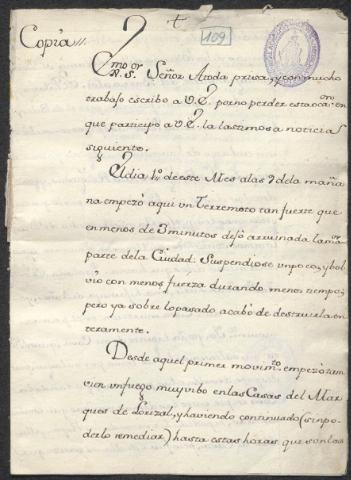 Copia //
109
Exmo Sor
N. S. Señor A toda prisa, y con mucho
trabajo escribo a V. E. por no perder esta ocaon
en que participo a V. E. la lastimosa noticia
siguiente.
El dia 1o de este Mes a las 9 de la maña
na empezó aqui un Terremoto tan fuerte que
en menos de 3 minutos dejó arruinada la mayor
parte de la Ciudad. Suspendiose un poco, y bol
vió con menos fuerza durando menos tiempo;
pero ya sobre lo pasado acabó de destruirla en
teramente.
Desde aquel primer movimto empezó tam
vien un fuego muy vibo en las Casas del Mar
ques de Lorizal, y haviendo continuado (sin po
derlo remediar) hasta estas horas que son las